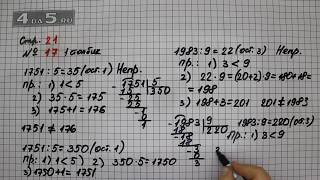 4 da 5.ru
Стр. 21
№ 17 1 столбик
1751 : 5 = 35 (ост. 1) Непр.
пр.: 1) 1 < 5
2) 35 · 5 = 175
3) 175 + 1 = 176
1751 ≠ 176
1751 : 5 = 350 (ост. 1)
Пр.: 1) 1 < 5 2) 350 · 5 = 1750
3) 1750 + 1 = 1751
1751 5
15 350
1983 : 9 = 22 (ост. 3) Непр.
пр.: 1) 3 < 9
2) 22 · 9 = (20+2) · 9 = 180 + 18 =
= 198
3) 198 + 3 = 201 201 ≠ 1983
1983 9
18 220
18
18
3
0
3
1983 : 9 = 220 (ост. 3)
Пр.: 1) 3 < 9